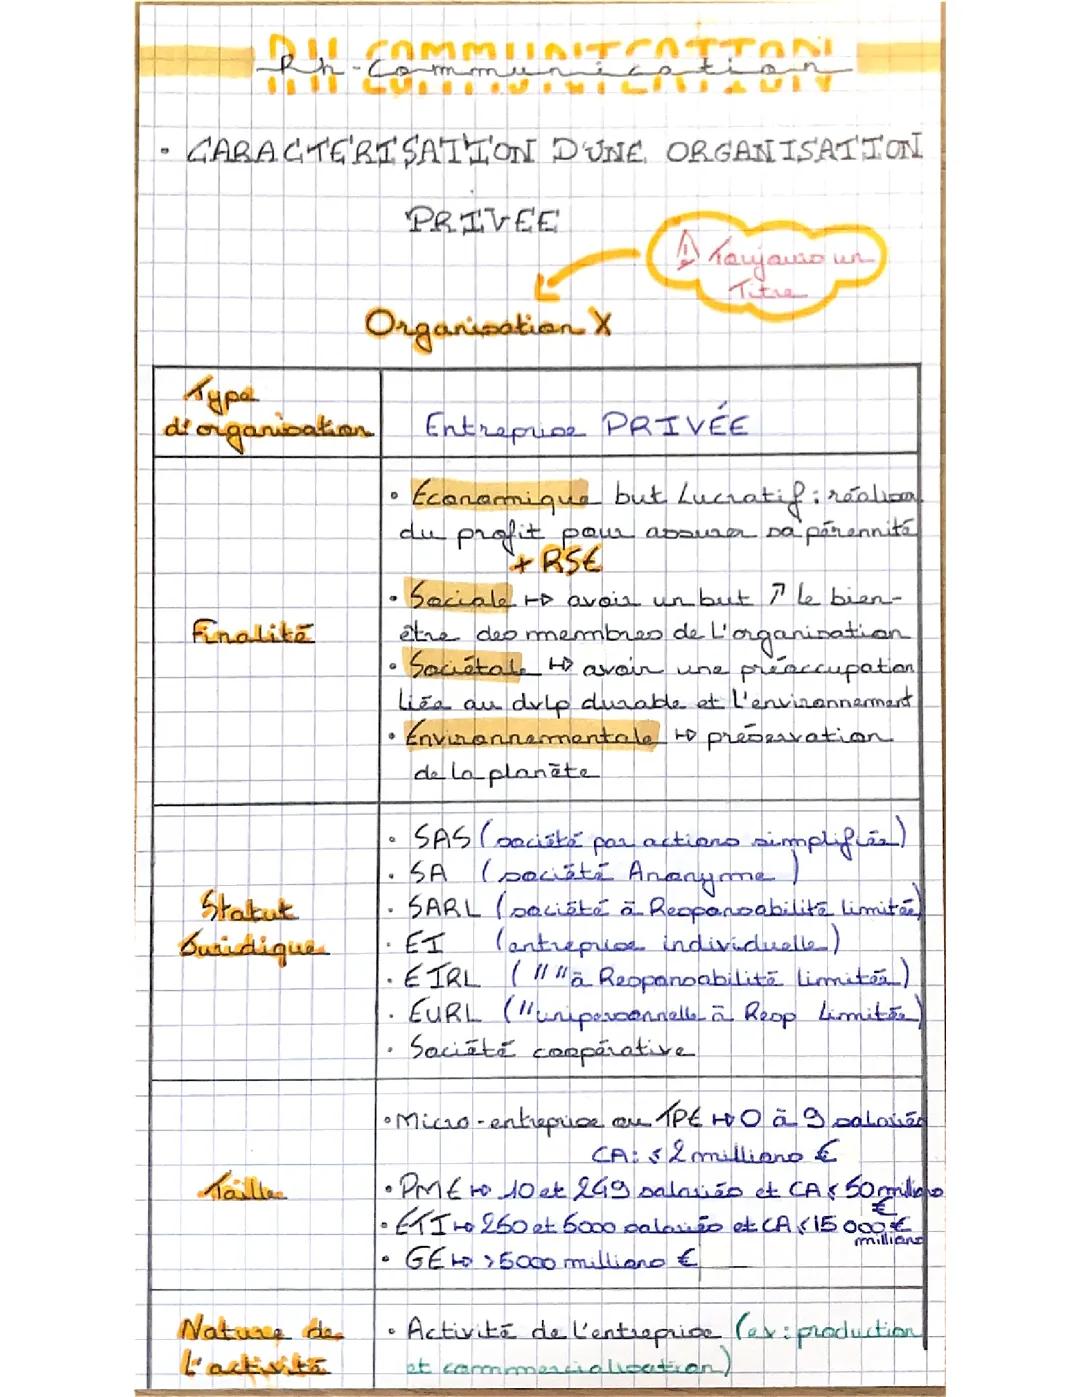 RH COMMUNICATION
Rh-Communication
• CARACTERISATION D'UNE ORGANISATION
PRIVEE
⚠ Toujours un
Titre
Organisation X
Type
d'organisation
Entreprise PRIVÉE
Finalité
• Économique but Lucratif : réaliser
du profit pour assurer sa pérennité
+ RSE
• Sociale ↦ avoir un but ↗ le bien-
être des membres de l'organisation
• Sociétale ↦ avoir une préoccupation
liée au dvlp durable et l'environnement
• Environnementale ↦ préservation
de la planète
Statut
Juridique
• SAS (société par actions simplifiée)
• SA (société Anonyme)
• SARL (société à Responsabilité limitée)
• EI (entreprise individuelle)
• EIRL (" " à Responsabilité Limitée)
• EURL (" unipersonnelle à Resp Limitée)
• Société coopérative
Taille
• Micro-entreprise ou TPE ↦ 0 à 9 salariés
CA: ≤ 2 millions €
• PME ↦ 10 et 249 salariés et CA ≤ 50 millions
€
• ETI ↦ 250 et 5000 salariés et CA ≤ 15 000 €
millions
• GE ↦ > 5000 millions €
Nature de
l'activité
• Activité de l'entreprise (ex : production
et commercialisation)